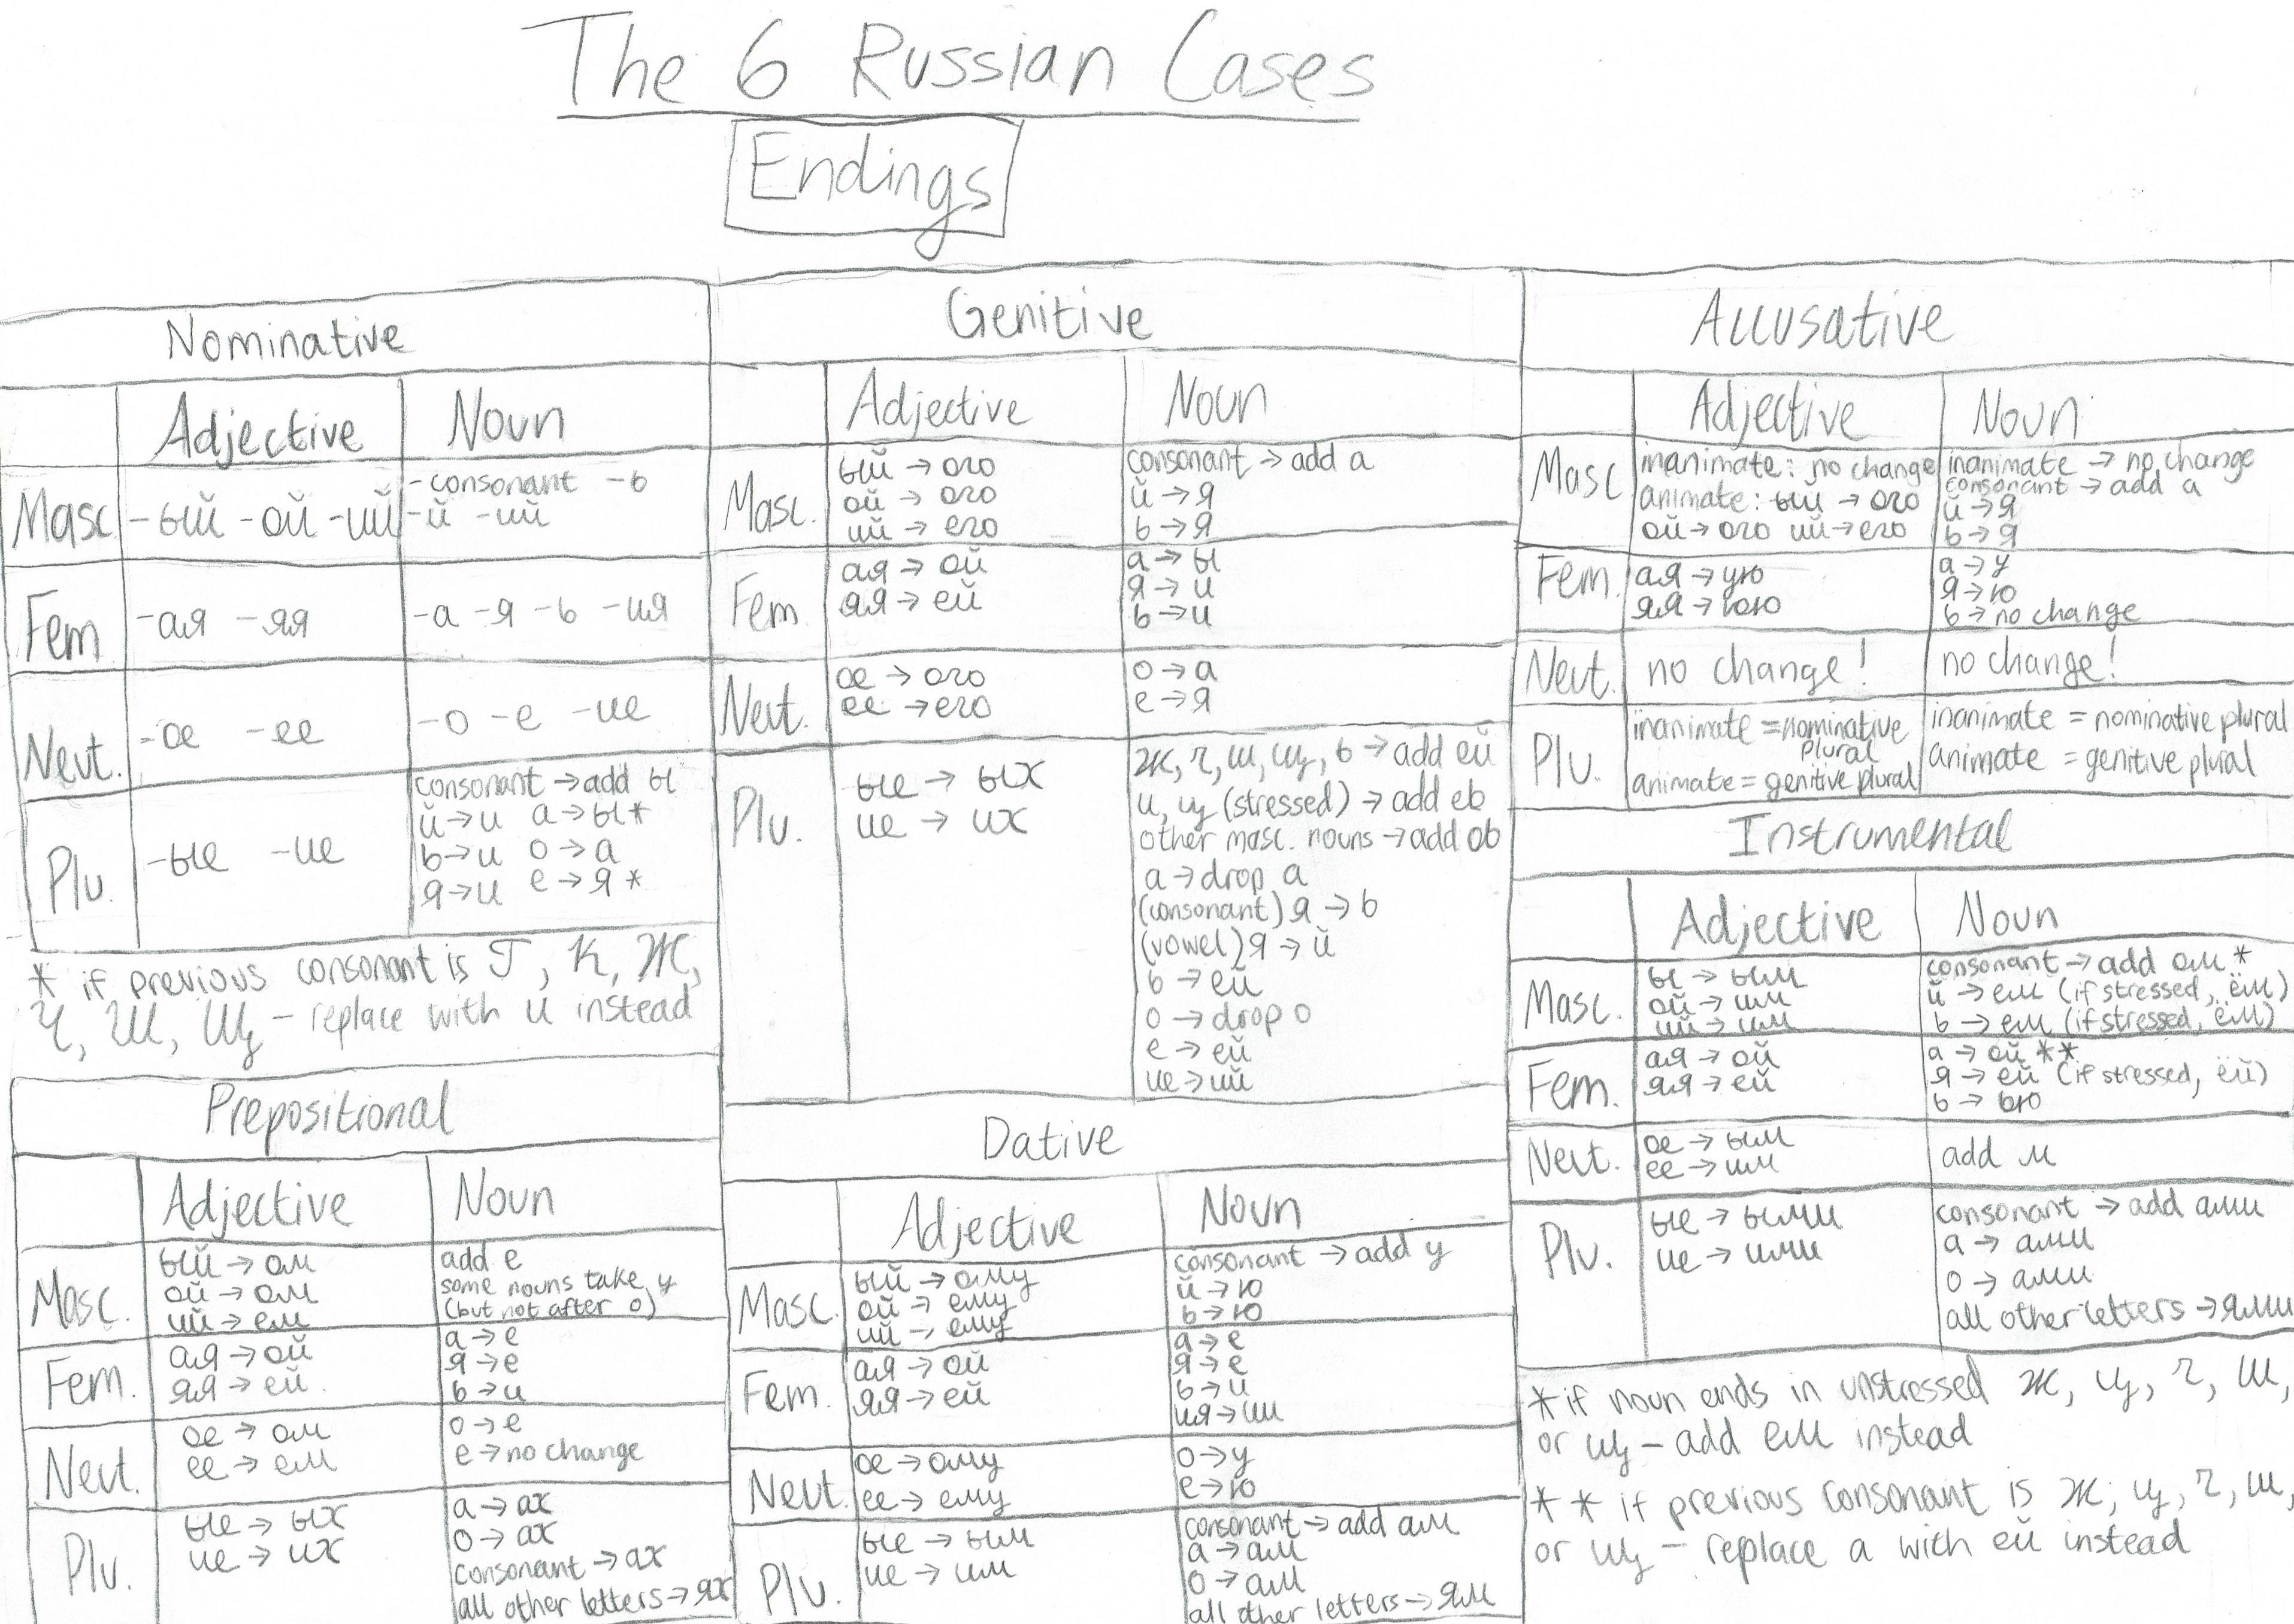 The 6 Russian Cases
Endings
Nominative
Adjective Noun
Masc -ый -ой -ий
-consonant -ь
-й -ий
Fem -ая -яя
-а -я -ь -ия
Neut. -ое -ее
-о -е -ие
Plu. -ые -ие
consonant → add ы
й→и а→ы*
ь→и о→а
я→и е→я*
* if previous consonant is Г, К, Ж,
Ч, Ш, Щ - replace with и instead
Genitive
Adjective Noun
Masc.
ый → ого
ой → ого
ий → его
consonant → add а
й→я
ь→я
Fem
ая → ой
яя → ей
а→ы
я→и
ь→и
Neut.
ое → ого
ее → его
о→а
е→я
Plu.
ые → ых
ие → их
ж, ч, ш, щ, ь → add ей
й, ц (stressed) → add ев
other masc. nouns → add ов
а→drop а
(consonant) я → ь
(vowel) я → й
ь → ей
о → drop о
е → ей
ие → ий
Accusative
Adjective Noun
Masc
inanimate: no change
animate: ый → ого
ой→ого ий→его
inanimate → no change
consonant → add а
й→я
ь→я
Fem.
ая → ую
яя → юю
а→у
я→ю
ь→no change
Neut.
no change!
no change!
Plu.
inanimate = nominative
plural
animate = genitive plural
inanimate = nominative plural
animate = genitive plural
Instrumental
Adjective Noun
Masc.
ы → ым
ой → им
ий → им
consonant → add ом *
й → ем (if stressed, ём)
ь → ем (if stressed, ём)
Fem.
ая → ой
яя → ей
а → ой **
я → ей (if stressed, ёй)
ь → ью
Neut.
ое → ым
ее → им
add м
Plu.
ые → ыми
ие → ими
consonant → add ами
а → ами
о → ами
all other letters → ями
*if noun ends in unstressed ж, ц, ч, ш,
or щ - add ем instead
** if previous consonant is ж, ц, ч, ш,
or щ - replace а with ей instead
Prepositional
Adjective Noun
Masc.
ый → ом
ой → ом
ий → ем
add е
some nouns take у
(but not after о)
Fem.
ая → ой
яя → ей.
а→е
я→е
ь→и
Neut.
ое → ом
ее → ем
о→е
е→no change
Plu.
ые → ых
ие → их
а → ах
о → ах
consonant → ах
all other letters → ях
Dative
Adjective Noun
Masc.
ый → ому
ой → ему
ий → ему
consonant → add у
й→ю
ь→ю
Fem.
ая → ой
яя → ей
а→е
я→е
ь→и
ия→ии
Neut.
ое → ому
ее → ему
о→у
е→ю
Plu.
ые → ым
ие → им
consonant → add ам
а→ам
о→ам
all other letters → ям